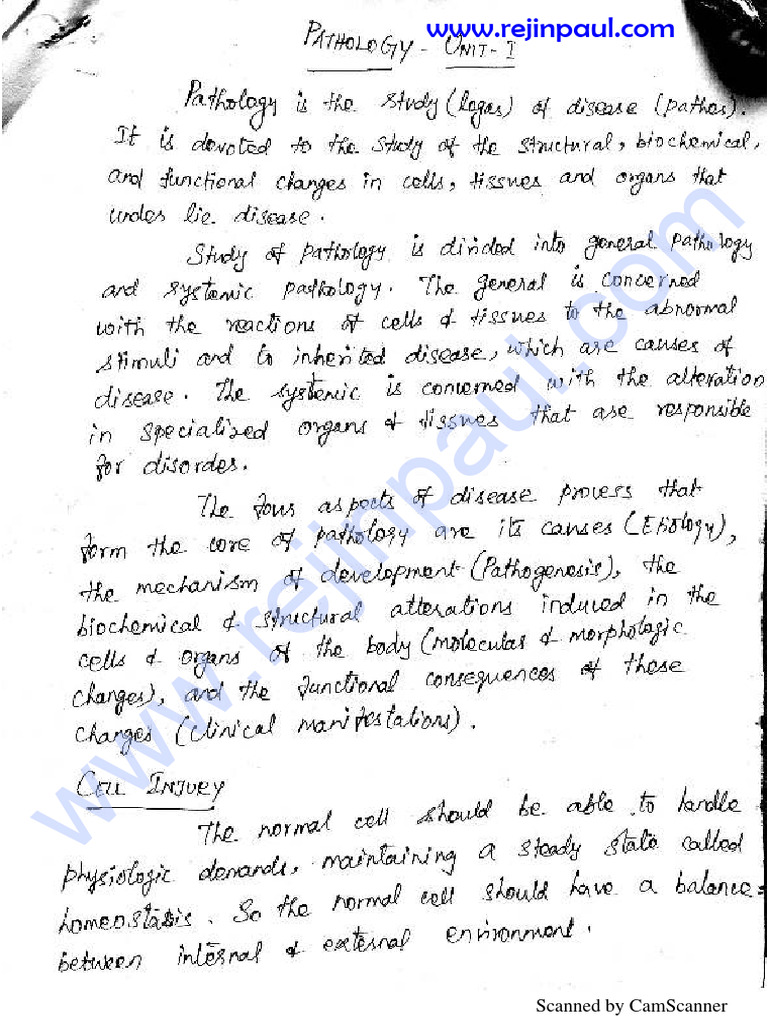 www.rejinpaul.com
PATHOLOGY - UNIT-I
Pathology is the study (logos) of disease (pathos).
It is devoted to the study of the structural, biochemical,
and functional changes in cells, tissues and organs that
under lie disease.
Study of pathology is divided into general pathology
and systemic pathology. The general is concerned
with the reactions of cells & tissues to the abnormal
stimuli and to inherited disease, which are causes of
disease. The systemic is concerned with the alteration
in specialized organs & tissues that are responsible
for disordes.
The four aspects of disease process that
form the core of pathology are its causes (Etiology),
the mechanism of development (Pathogenesis), the
biochemical & structural alterations induced in the
cells & organs of the body (molecular & morphologic
changes), and the functional consequences of these
changes (clinical manifestations).
CELL INJURY
The normal cell should be able to handle
physiologic demands, maintaining a steady state called
homeostasis. So the normal cell should have a balance
between internal & external environment.
www.rejinpaul.com
Scanned by CamScanner